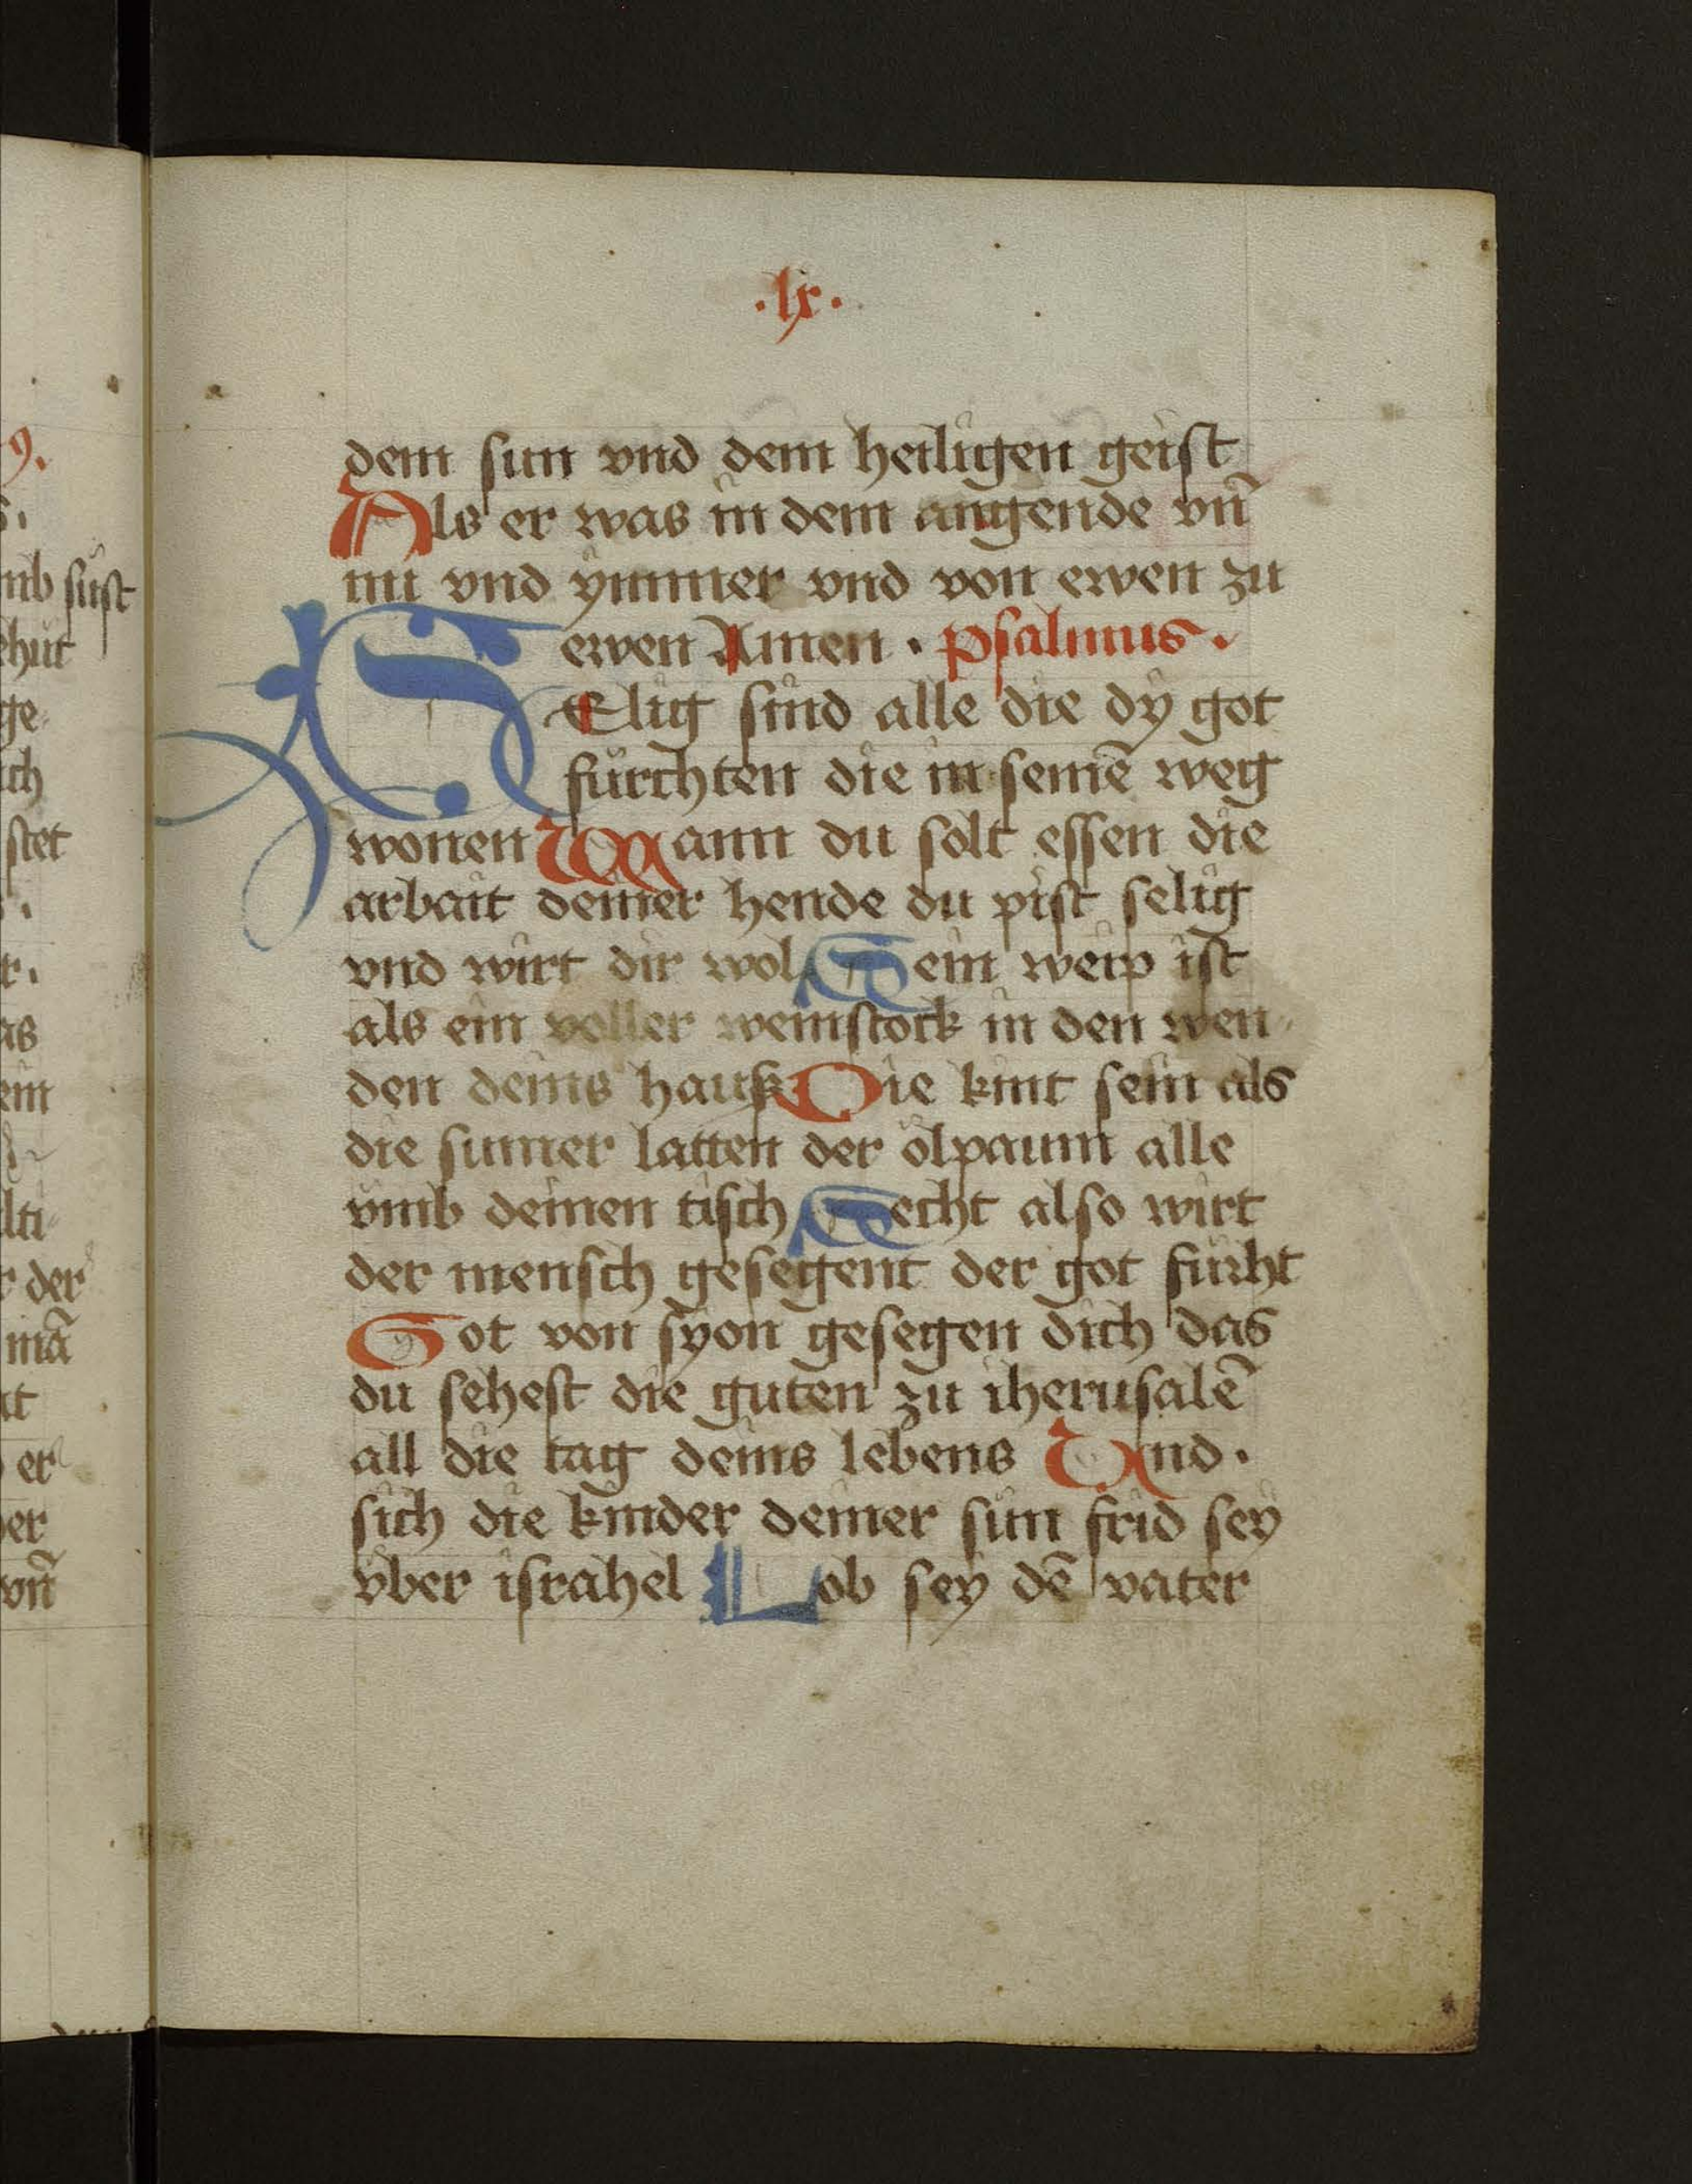 .lx.
dem sun vnd dem heiligen geist
Als er was in dem angende vn̄
nu vnd ymmer vnd von ewen zu
ewen Amen . psalmus .
SElig sind alle die dy got
fürchten die in seinē weg
wonen Wann du solt essen die
arbait deiner hende du pist selig
vnd wirt dir wol Dein weip ist
als ein voller weinstock in den wen
den deins hauß Die kint sein als
die sumer latten der ölpaum alle
vmb deinen tisch Secht also wirt
der mensch gesegent der got fürht
Got von syon gesegen dich das
du sehest die guten zu iherusalē
all die tag deins lebens Und .
sich die kinder deiner sün frid sey
vber israhel Lob sey dē vater